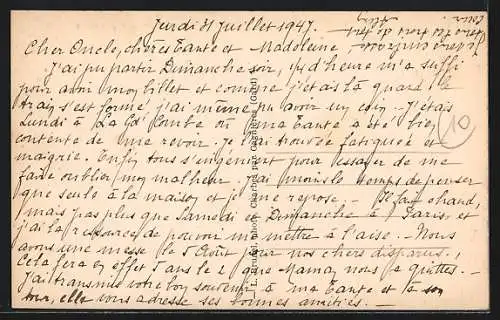 Jeudi 31 Juillet 1947.
Cher Oncle, chères Tante et Madeleine
J'ai pu partir Dimanche soir, 1/4 d'heure m'a suffi
pour avoir mon billet et comme j'étais là quand le
train s'est formé, j'ai même pu avoir un coin. J'étais
Lundi à La Gd' Combe où ma Tante a été bien
contente de me revoir. Je l'ai trouvée fatiguée et
maigrie. Enfin tous s'ingénient pour essayer de me
faire oublier mon malheur. J'ai moins le temps de penser
que seule à la maison et je me repose. - Il fait chaud,
mais pas plus que Samedi et Dimanche à Paris, et
j'ai la ressource de pouvoir me mettre à l'aise. - Nous
avons une messe le 5 Août pour nos chers disparus,
Cela fera en effet 5 ans le 2 que Maman nous a quittés. -
J'ai transmis votre bon souvenir à ma Tante et
elle vous adresse ses bonnes amitiés. -
10